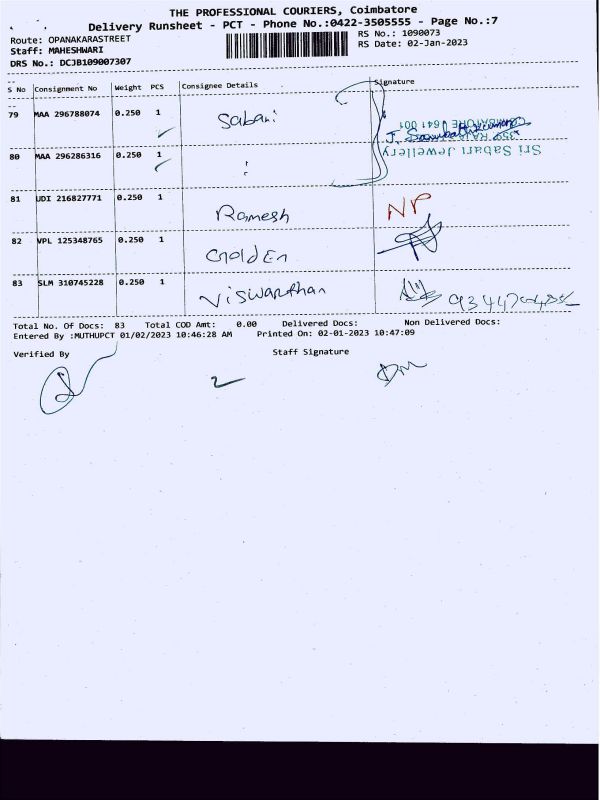 THE PROFESSIONAL COURIERS, Coimbatore
Delivery Runsheet - PCT - Phone No.:0422-3505555 - Page No.:7
Route: OPANAKARASTREET
RS No.: 1090073
Staff: MAHESHWARI
RS Date: 02-Jan-2023
DRS No.: DCJB109007307
S No Consignment No Weight PCS Consignee Details Signature
79 MAA 296788074 0.250 1 Sabari
80 MAA 296286316 0.250 1 "
Sri Sabari Jewellery
COIMBATORE 641 001
81 UDI 216827771 0.250 1 Ramesh NP
82 VPL 125348765 0.250 1 Golden
83 SLM 310745228 0.250 1 Viswanthan
Total No. Of Docs: 83 Total COD Amt: 0.00 Delivered Docs: Non Delivered Docs:
Entered By :MUTHUPCT 01/02/2023 10:46:28 AM Printed On: 02-01-2023 10:47:09
Verified By Staff Signature